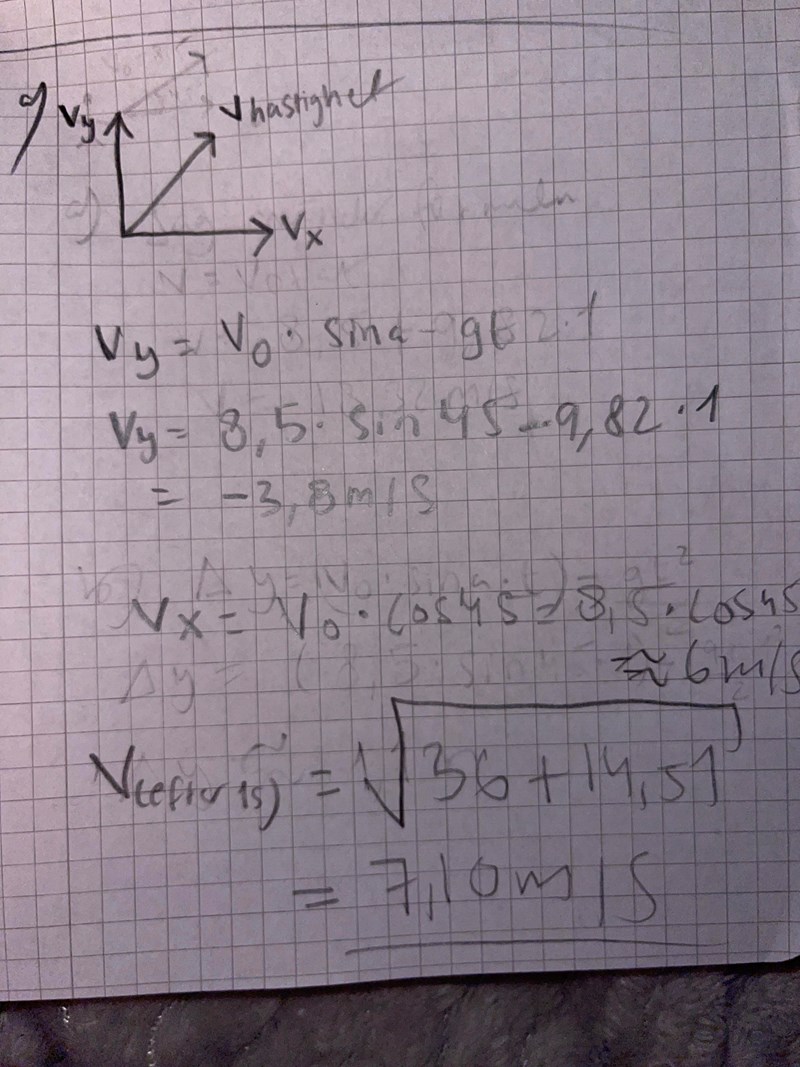 a)
Vy
Vhastighet
Vx
Vy = V0 · sina - gt 2·1
Vy = 8,5 · sin 45 - 9,82 · 1
= -3,8 m/s
Vx = V0 · cos45 = 8,5 · cos45
≈ 6 m/s
V(efter 1s) = √36 + 14,51
= 7,10 m/s